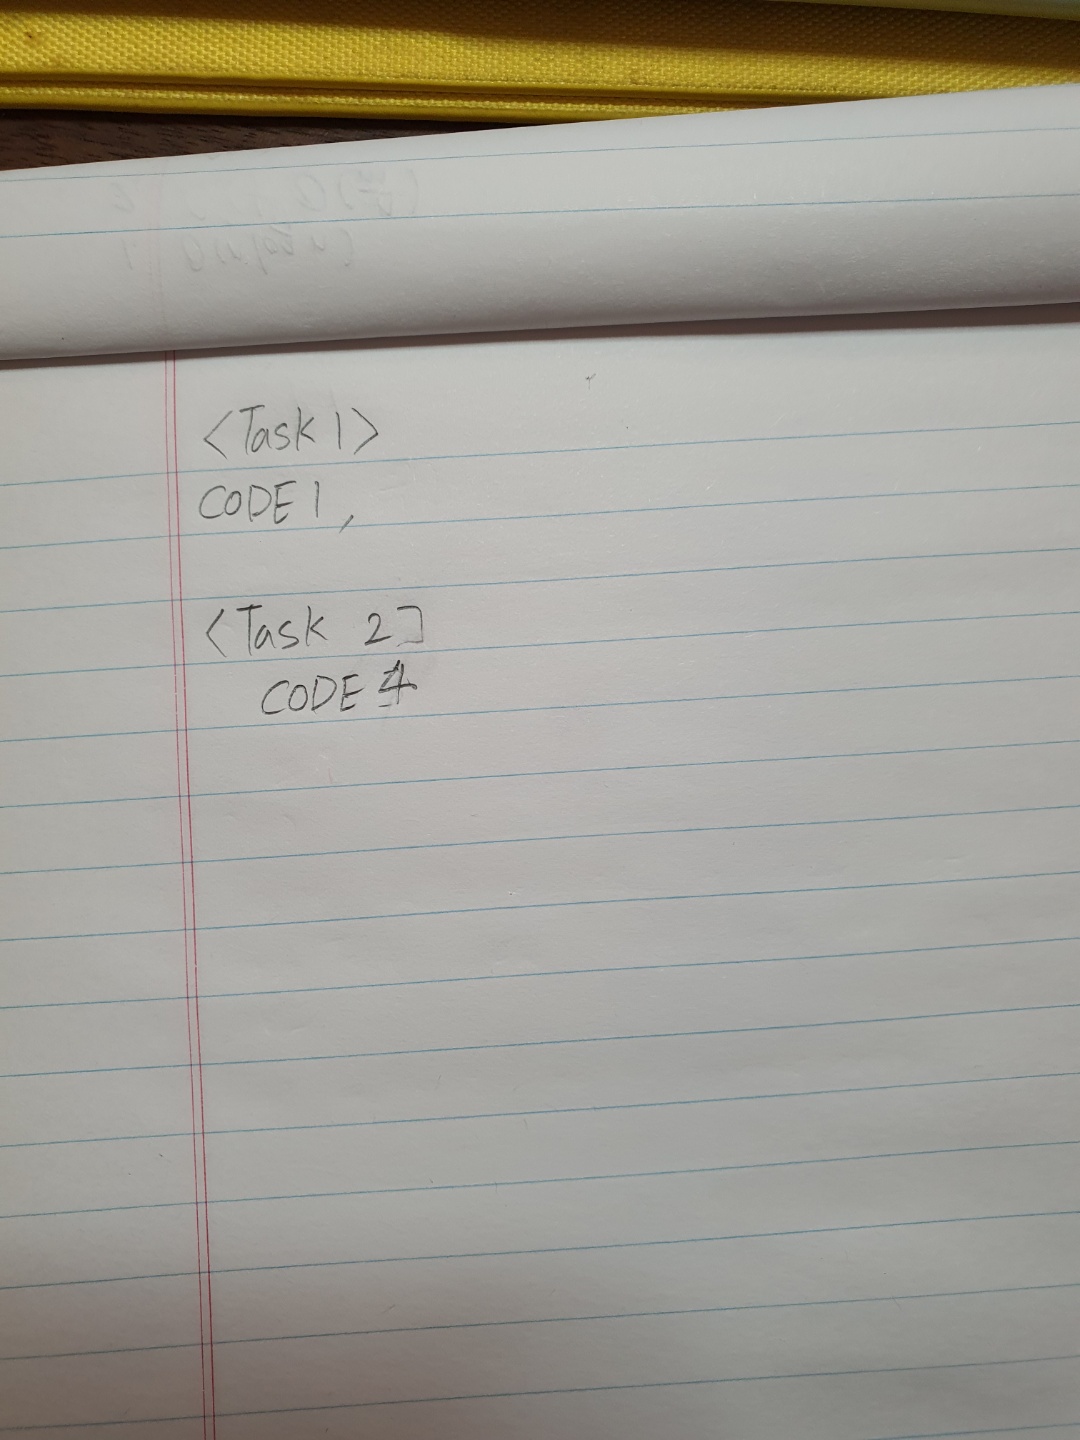 <Task 1>
CODE 1,
<Task 2]
CODE 4